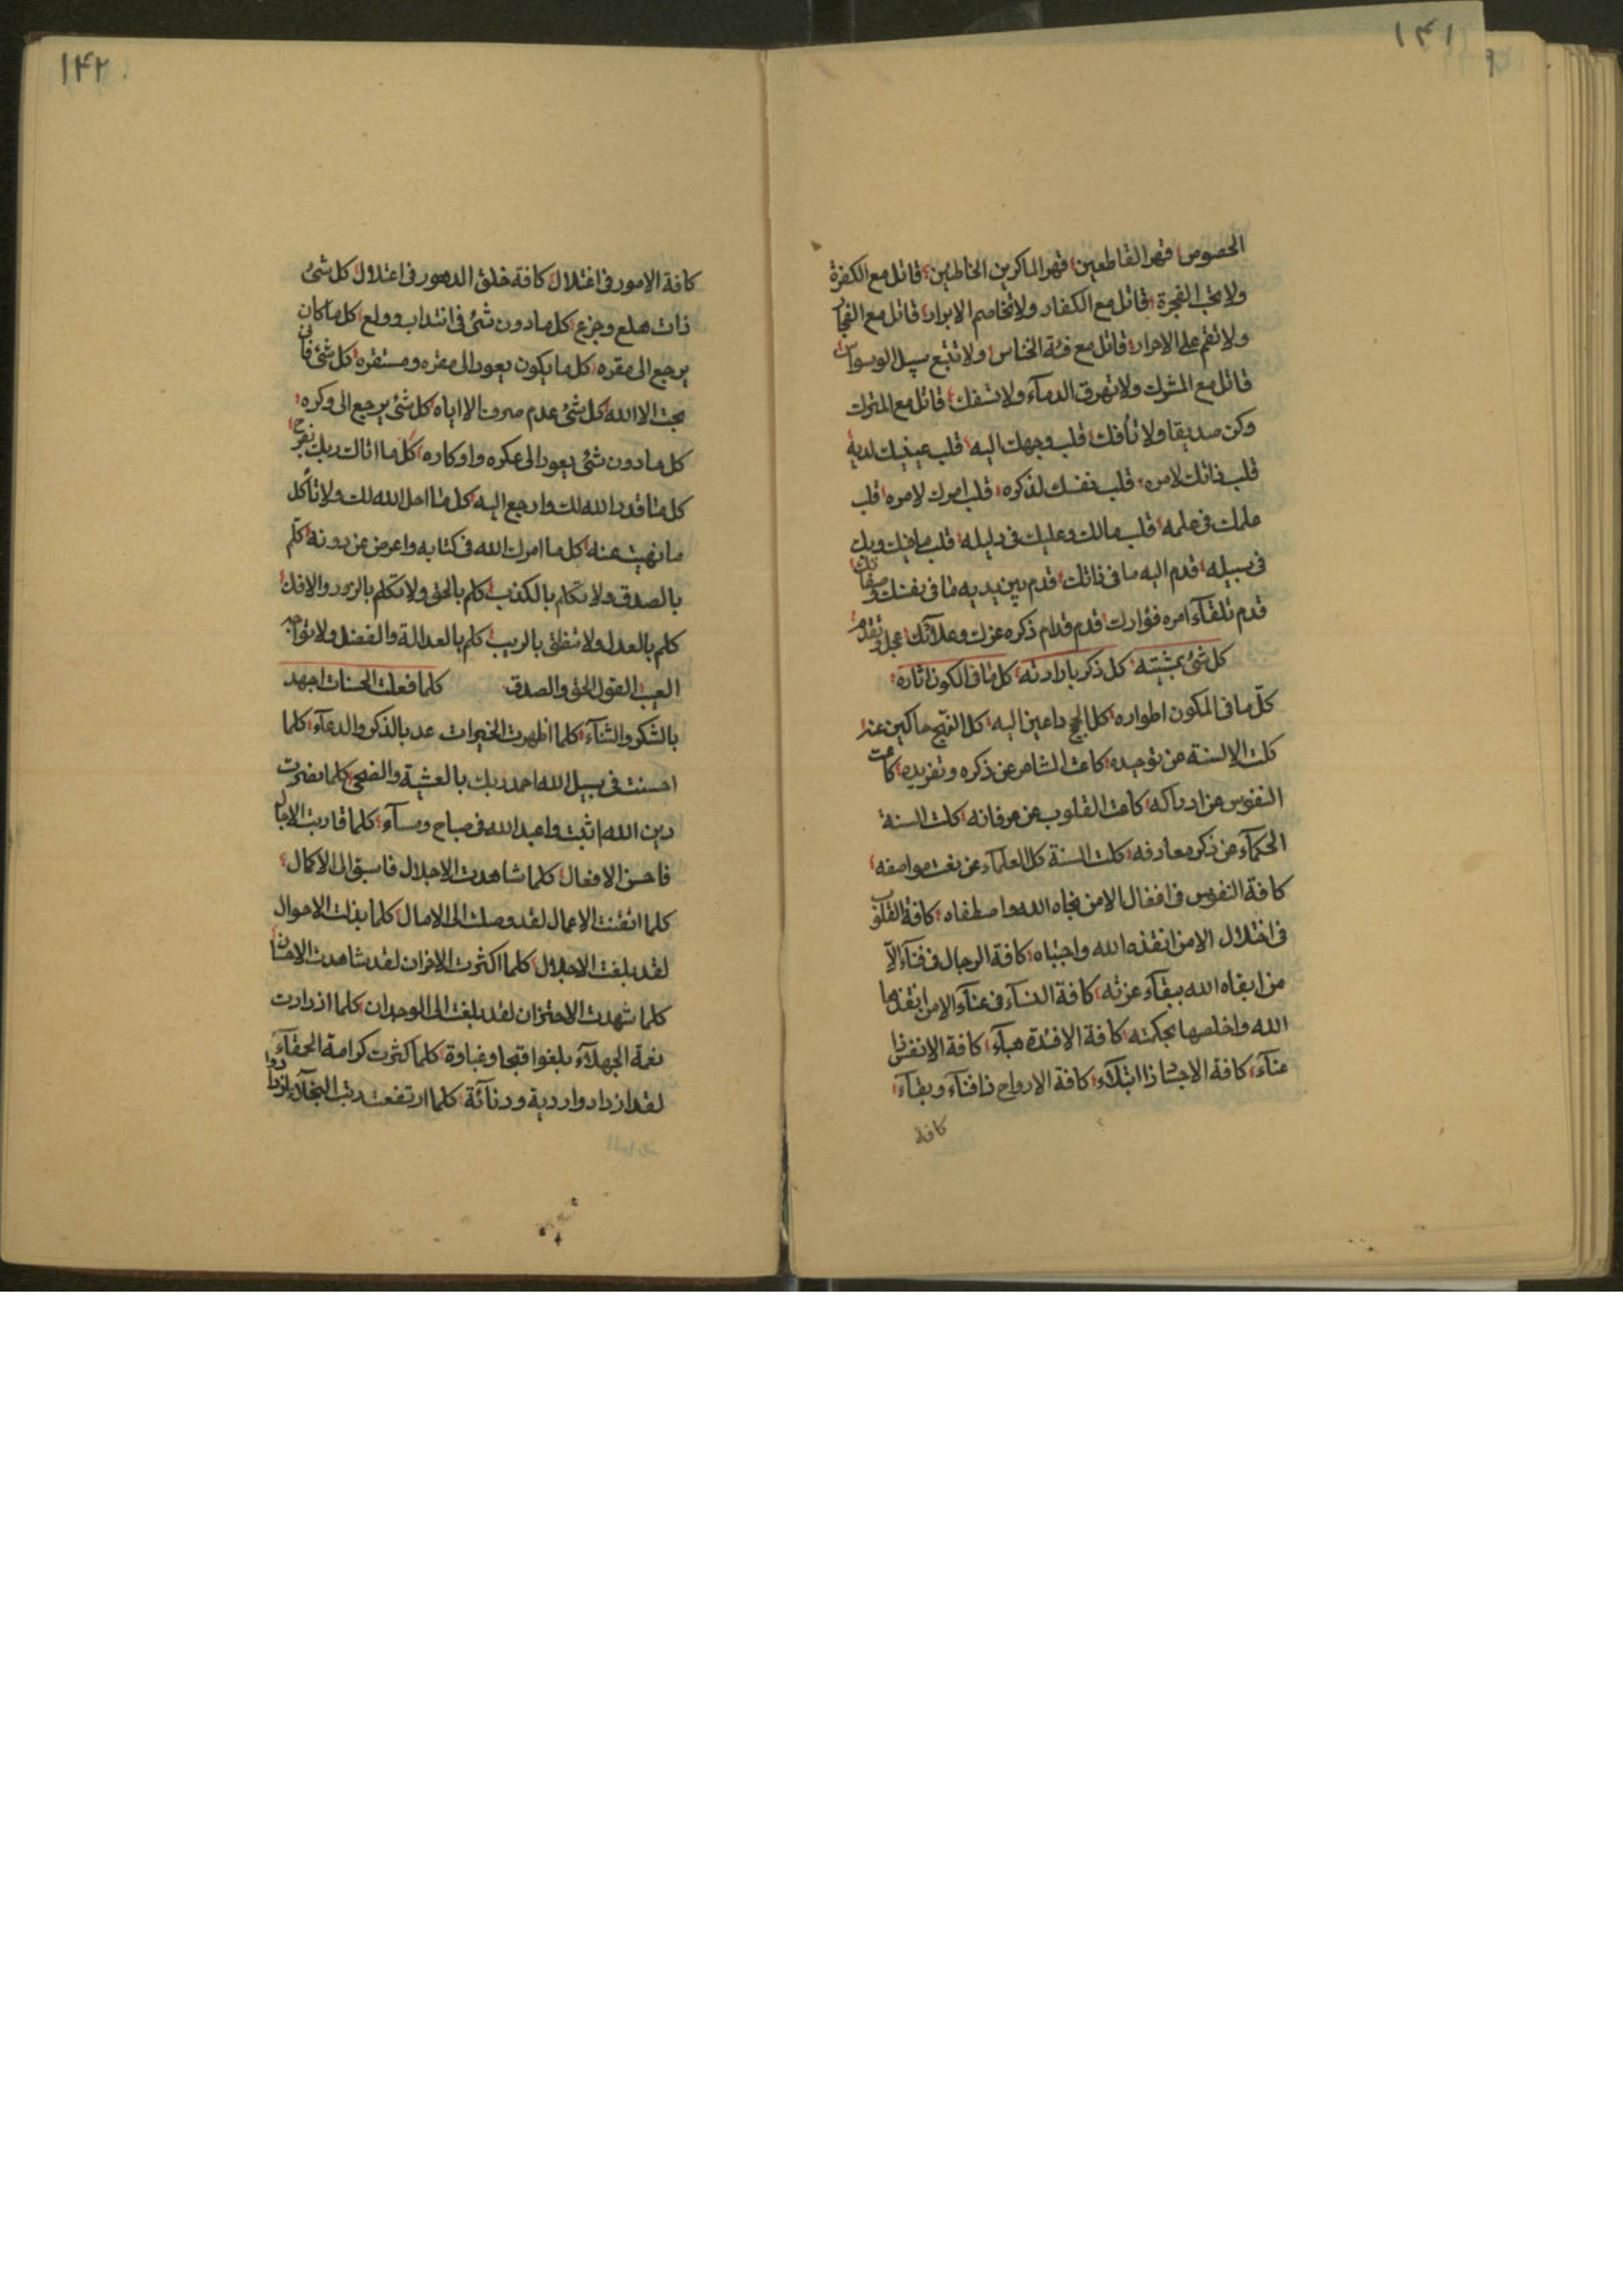 ١٤١
الخصوص قهر القاطعين قهر الماكرين الخاطئين قاتل مع الكفرة
ولا تحب الفجرة قاتل مع الكفار ولا تخاصم الابرار قاتل مع الفجار
ولا تقم على الاحرار قاتل مع فئة الخناس ولا تتبع سبيل الوسواس
قاتل مع المشرك ولا تهرق الدماء ولا تسفك قاتل مع المترك
وكن صديقا ولا تأفك قلب وجهك اليه قلب عينيك لديه
قلب ذاتك لامره قلب نفسك لذكره قلب امرك لامره قلب
علمك فى علمه قلب مالك وعليك فى دليله قلب ما فيك وبك
فى سبيله قدم اليه ما فى ذاتك قدم بين يديه ما فى نفسك وصفاتك
قدم تلقآء امره فؤادك قدم قدام ذكره عزك وعلآئك
كل شئ بمشيته كل ذكر بارادته كل ما فى الكون اثاره
كل ما فى المكون اطواره كل داعين اليه كل حاكين عنه
كلت الالسنة عن توحيده كاعت المشاعر عن ذكره وتفريده كاعت
النفوس عن ادراكه كاعت القلوب عن عرفانه كلت السنة
الحكمآء عن ذكر معارفه كلت السنة كل العلمآء عن نعت مواصفه
كافة النفوس فى اغفال الا من نجاه الله واصطفاه كافة القلوب
فى اختلال الا من انقذه الله واجتباه كافة الرجال فى فنآء الا
من ابقاه الله ببقآء عزته كافة النسآء فى عنآء الا من انقذها
الله واخلصها بحكمته كافة الافئدة هبآء كافة الانفس ذا
عنآء كافة الاجساد ذا ابتلآء كافة الارواح ذا فنآء وبقآء
كافة
١٤٢
كافة الامور فى اختلال كافة خلق الدهور فى اعتلال كل شئ
ذات هلع وجزع كل ما دون شئ فى انتداب وولع كل ما كان
يرجع الى مقره كل ما يكون يعود الى مقره ومستقره كل شئ فان
بحت الا الله كل شئ عدم صرف الا اياه كل شئ يرجع الى وكره
كل ما دون شئ يعود الى عكره واوكاره كل ما اتاك ربك بفرح
كل ما قدر الله لك وارجع اليه كل ما احل الله لك ولا تأكل
ما نهيت عنه كل ما امرك الله فى كتابه واعرض عن دونه كلم
بالصدق ولا تكلم بالكذب كلم بالحق ولا تكلم بالزور والافك
كلم بالعدل ولا تنطق بالريب كلم بالعدالة والفضل ولا
العيب القول الحق والصدق كلما فعلت الحسنات اجهد
بالشكر والثنآء كلما اظهرت الخيرات عد بالذكر والدعآء كلما
احسنت فى سبيل الله احمد ربك بالعشية والضحى كلما نصرت
دين الله اثبت واعبد الله فى صباح ومسآء كلما قاربت الاجال
فاحسن الافعال كلما شاهدت الاجلال فاسبق الى الاكمال
كلما اتقنت الاعمال لقد وصلت الى الامال كلما بذلت الاحوال
لقد بلغت الاجلال كلما اكثرت الاخزان لقد شاهدت
كلما شهدت الاحتزان لقد بلغت الى الوجدان كلما ازدادت
نعمة الجهلآء بلغوا قبحا وغباوة كلما كثرت كرامة الحمقآء
لقد ازدادوا ردية ودنآئة كلما ارتفعت رتب ازدادوا